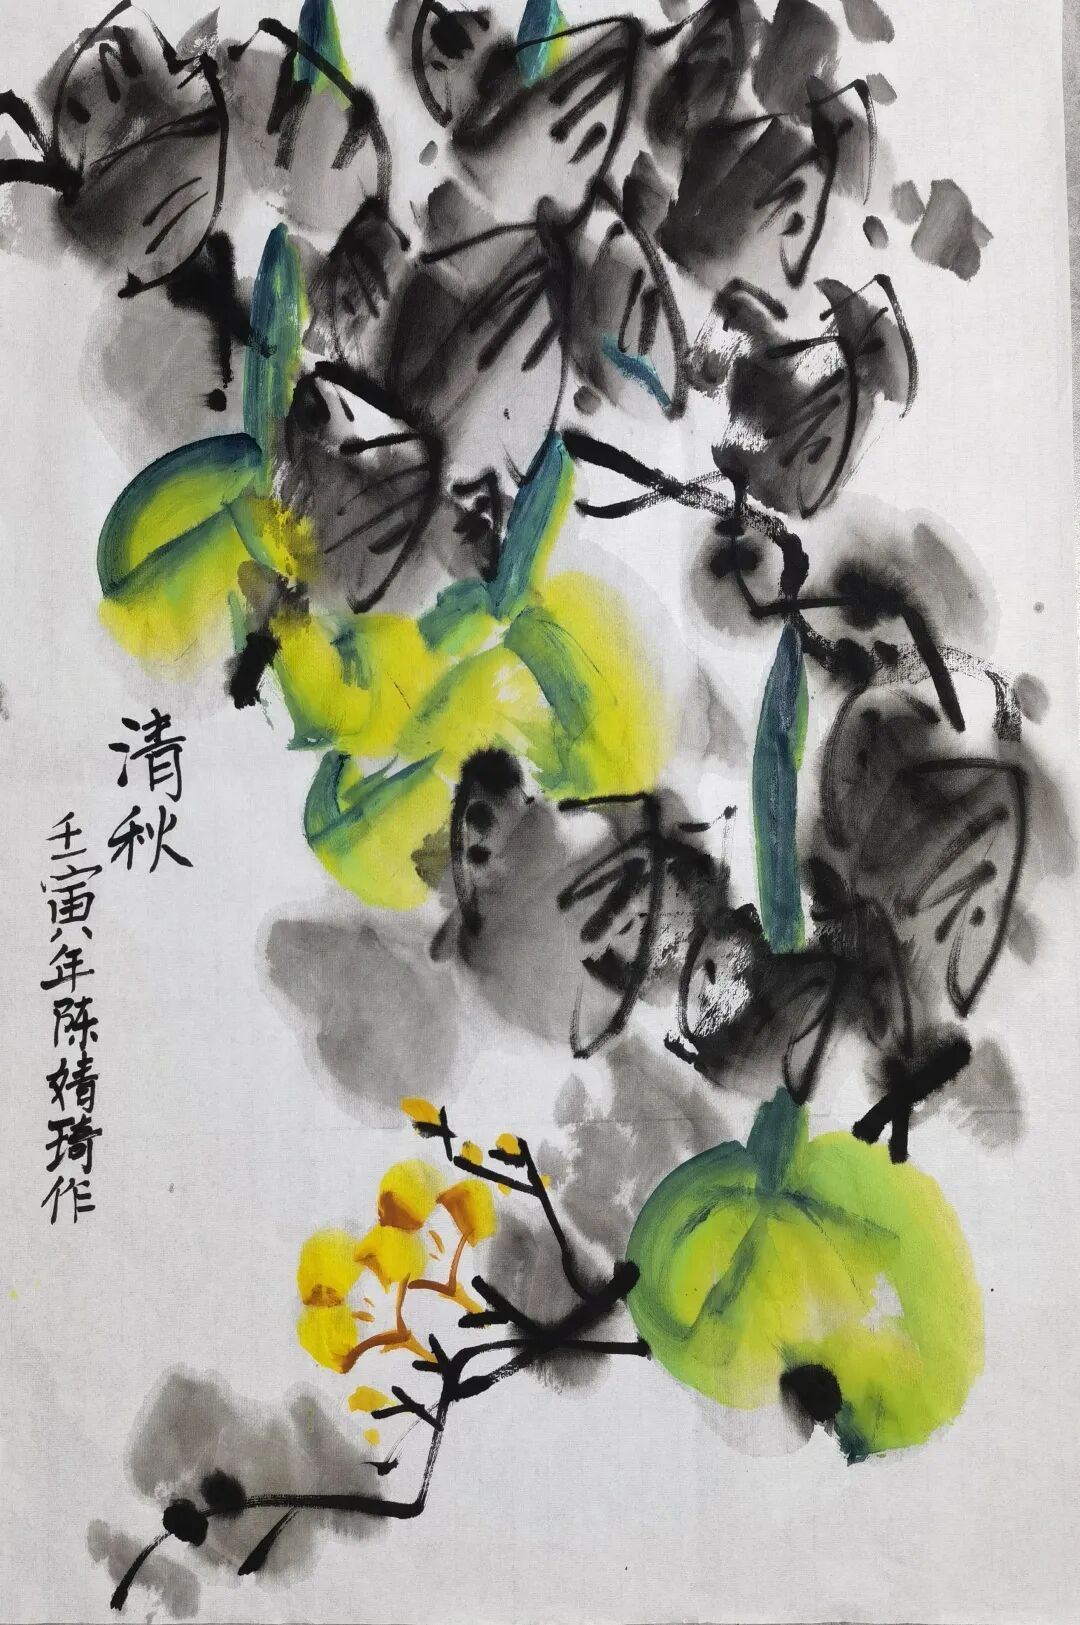 清秋
壬寅年陈婧琦作